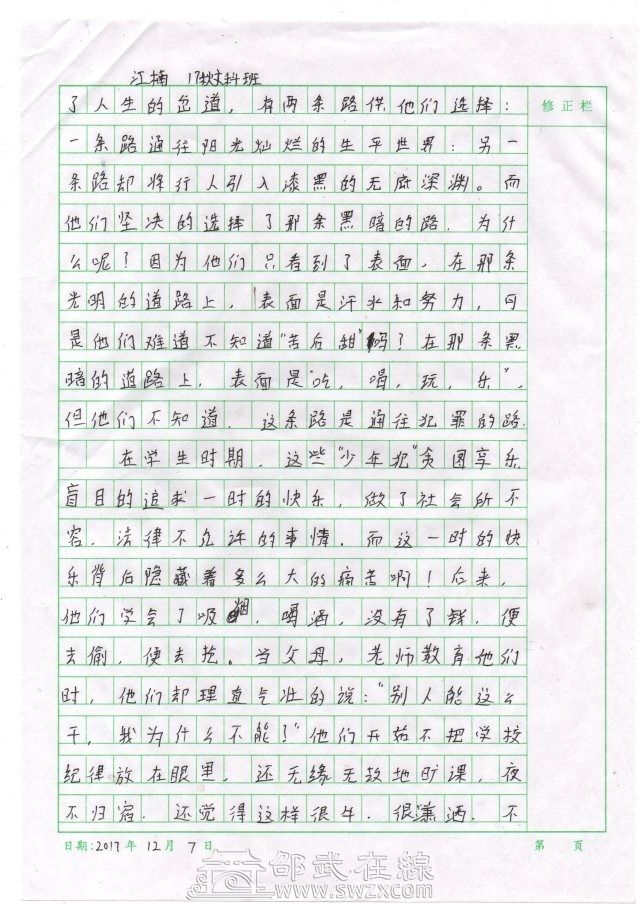 江楠 17秋文科班
了人生的岔道，有两条路供他们选择：
修正栏
一条路通往阳光灿烂的生平世界；另一
条路却将行人引入漆黑的无底深渊。而
他们坚决的选择了那条黑暗的路．为什
么呢？因为他们只看到了表面，在那条
光明的道路上，表面是汗水和努力，可
是他们难道不知道“苦后甜”吗？在那条黑
暗的道路上，表面是“吃，喝，玩，乐”，
但他们不知道，这条路是通往犯罪的路．
在学生时期，这些“少年犯”贪图享乐
盲目的追求一时的快乐，做了社会所不
容．法律不允许的事情．而这一时的快
乐背后隐藏着多么大的痛苦啊！后来，
他们学会了吸烟，喝酒，没有了钱，便
去偷，便去抢。当父母，老师教育他们
时，他们却理直气壮的说：“别人能这么
干，我为什么不能！”他们开始不把学校
纪律放在眼里，还无缘无故地旷课，夜
不归宿．还觉得这样很牛．很潇洒．不
日期：2017年 12月 7日
第 页
邵武在線
www.swzx.com